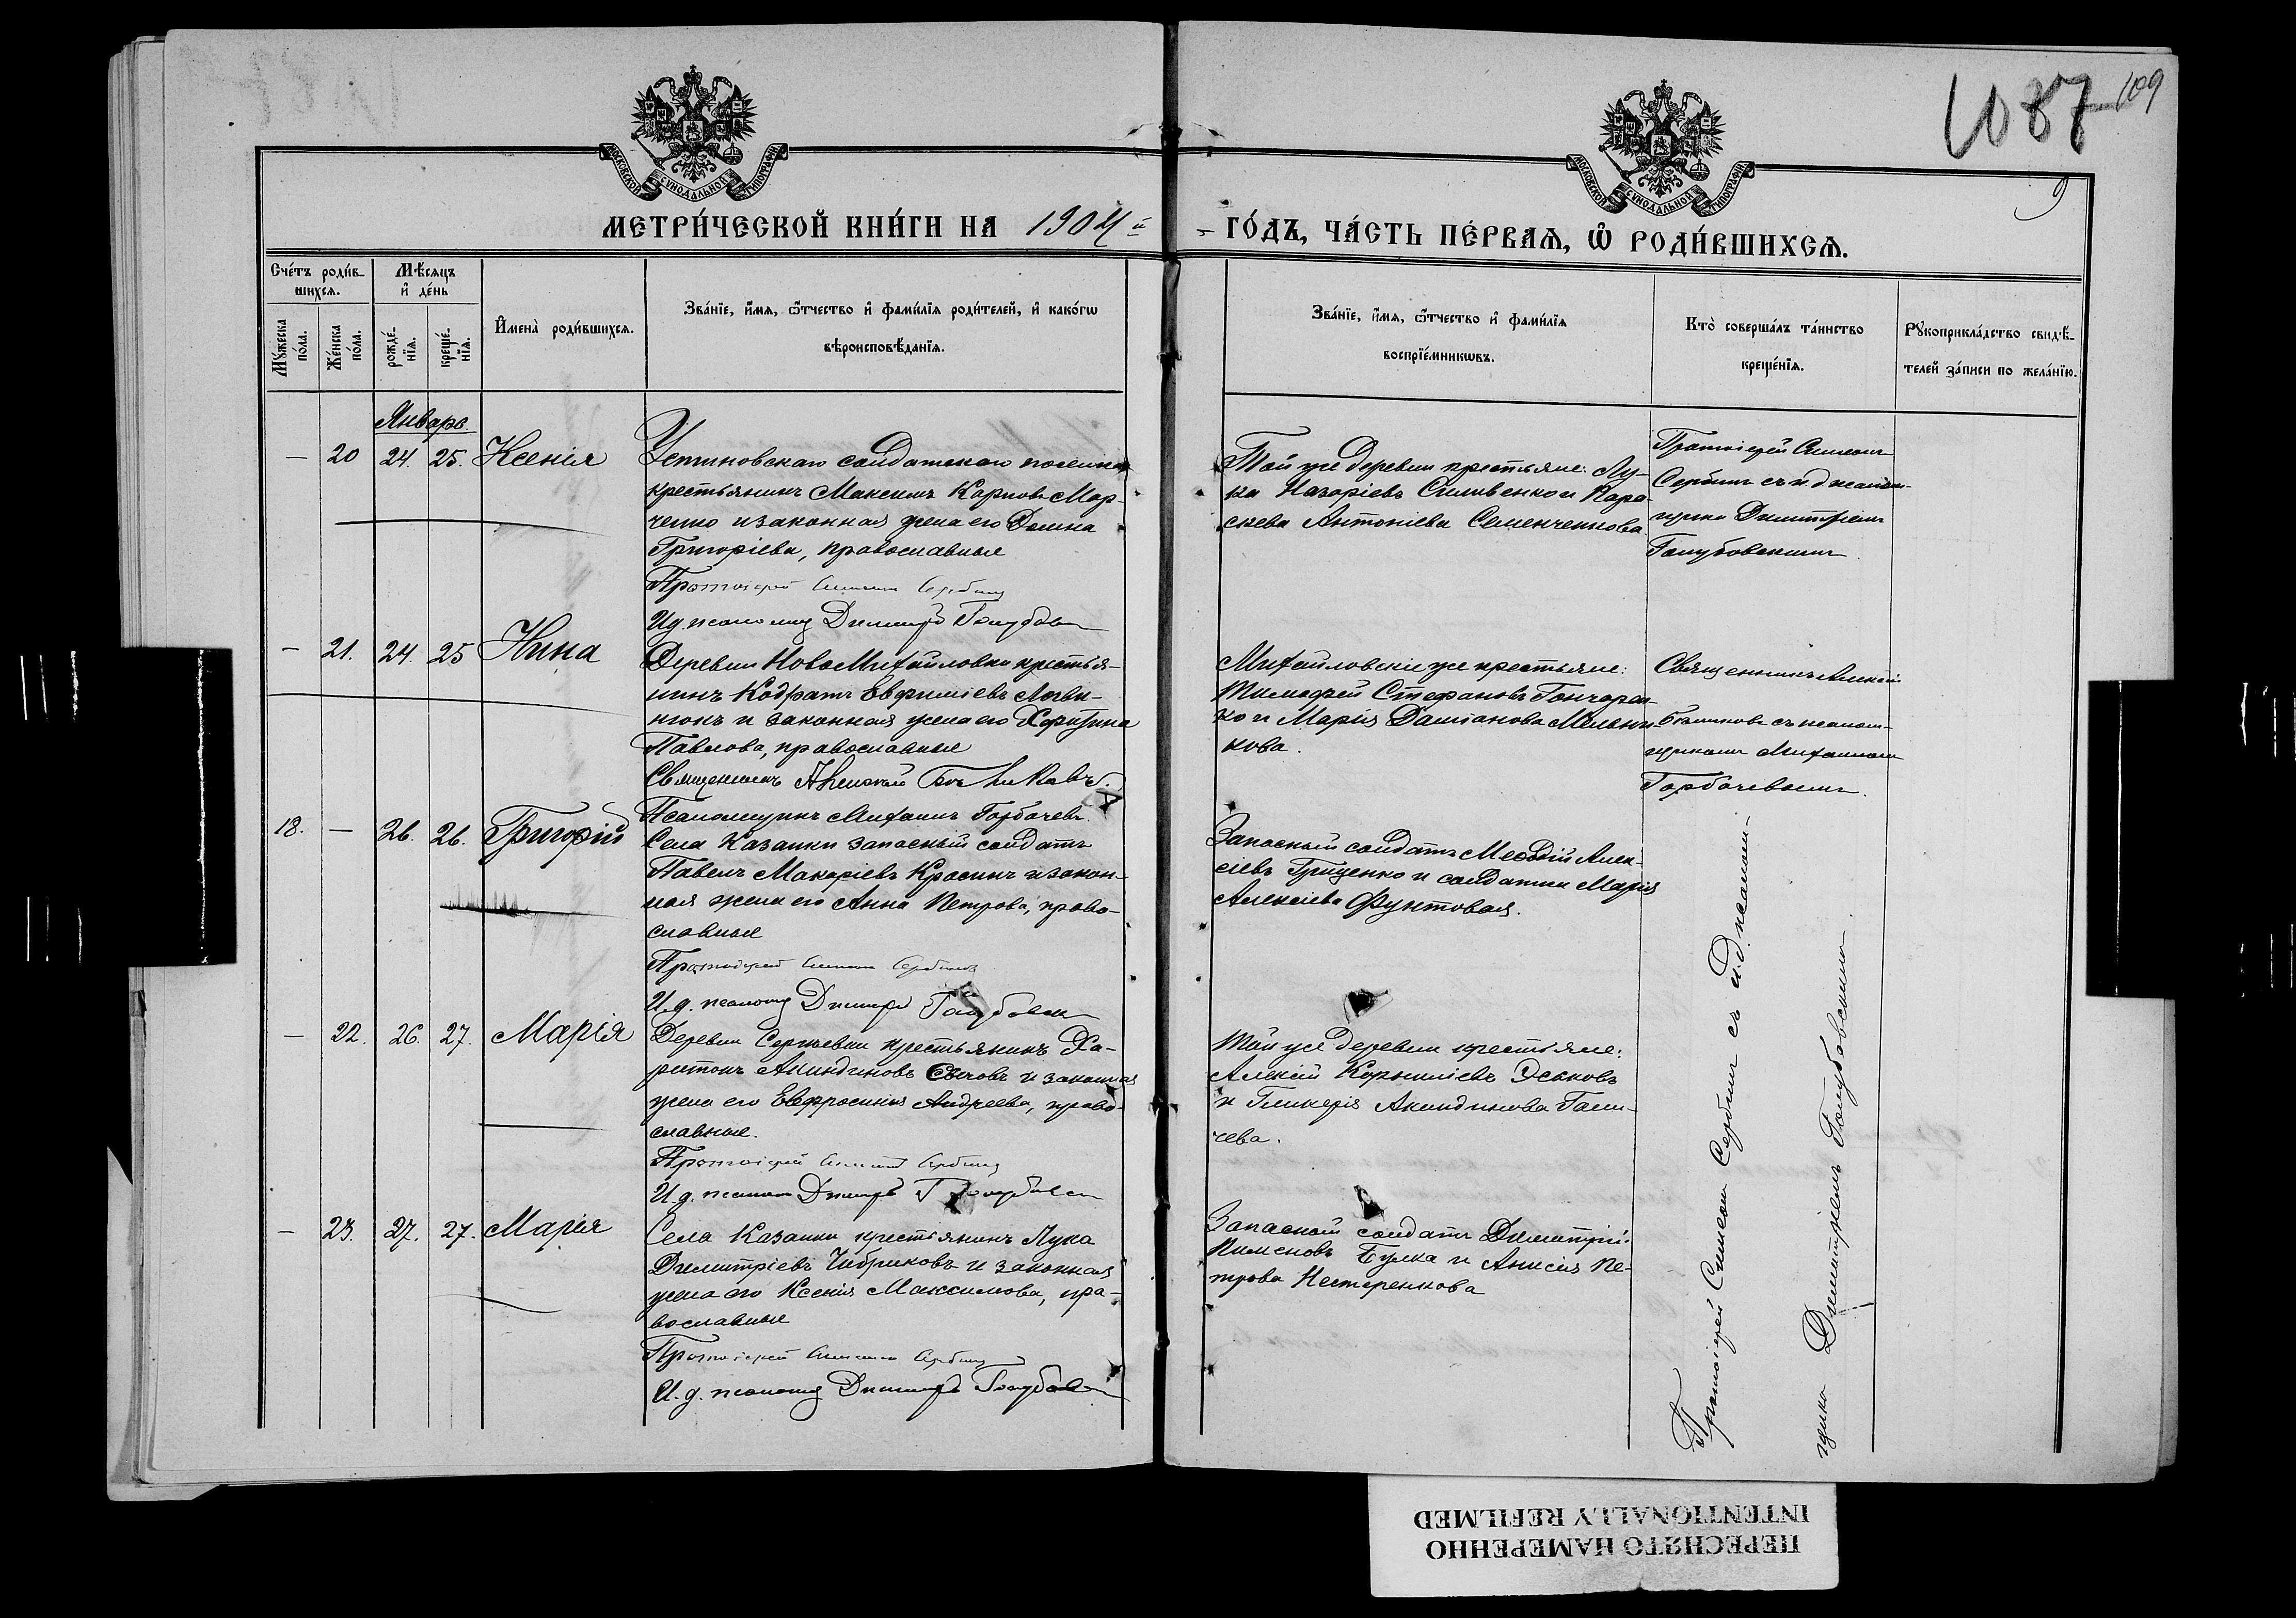 1087 109
9
МОСКОВСКОЙ СѴНОДАЛЬНОЙ ТИПОГРАФІИ
МОСКОВСКОЙ СѴНОДАЛЬНОЙ ТИПОГРАФІИ
МЕТРИ́ЧЕСКОЙ КНИ́ГИ НА 1904й
ГО́ДЪ, ЧА́СТЬ ПЕ́РВАѦ, Ѽ РОДИ́ВШИХСѦ.
Сче́тъ роди́в-
шихсѧ.
Мѣ́сѧцъ
и҆ де́нь
Мꙋ́жеска
по́ла.
Же́нска
по́ла.
рожде́-
нїѧ.
креще́-
нїѧ.
И҆мена̀ роди́вшихсѧ.
Зва́нїе, и҆́мѧ, ѻ҆́тчество и҆ фами́лїѧ роди́телей, и҆ како́гѡ
вѣроисповѣ́данїѧ.
Зва́нїе, и҆́мѧ, ѻ҆́тчество и҆ фами́лїѧ
воспрїе́мникѡвъ.
Кто̀ соверша́лъ та́инство
креще́нїѧ.
Рꙋкоприкла́дство свидѣ́-
телей за́писи по жела́нїю.
Январь.
— 20 24. 25. Ксенія
Устиновскаго солдатскаго поселка
крестьянинъ Максимъ Карповъ Мар-
ченко и законная жена его Домна
Григоріева, православные
Протоіерей Симеонъ Сербинъ
И.д. псаломщ Димитрій Голубовск
Той же деревни крестьяне: Лу-
ка Назаріевъ Силивенко и Пара-
скева Антоніева Семенченкова.
Протоіерей Симеонъ
Сербинъ съ и.д. псалом-
щика Димитріемъ
Голубовскимъ.
— 21. 24. 25 Нина
Деревни НовоМихайловки крестья-
нинъ Кодратъ Евфиміевъ
и законная жена его Харитина
Павлова, православные
Священникъ Алексій
Псаломщикъ Михаилъ Горбачевъ.
Михайловскіе же крестьяне:
Тимофей Стефановъ Гончарен-
ко и Марія Даміанова Мельни-
кова.
Священникъ Алексій
съ псалом-
щикомъ Михаиломъ
Горбачевымъ.
18. — 26. 26. Григорій
Села Казанки запасный солдатъ
Павелъ Макаріевъ Красинъ и закон-
ная жена его Анна Петрова, право-
славные
Протоіерей Симеонъ Сербинъ
И.д. псаломщ Димитрій Голубовск
Запасный солдатъ Меѳодій Алек-
сіевъ Гриценко и солдатка Марія
Алексіева Фунтовая.
— 22. 26. 27. Марія
Деревни Сергіевки крестьянинъ Ха-
ритонъ Акиндиновъ Сычовъ и законная
жена его Евфросинія Андреева, право-
славные.
Протоіерей Симеонъ Сербинъ
И.д. псаломщ Димитрій Голубовск
Той же деревни крестьяне:
Алексій Корниліевъ Эськовъ
и Гликерія Акиндинова Гали-
чева.
— 23. 27. 27. Марія
Села Казанки крестьянинъ Лука
Димитріевъ Чибриковъ и законная
жена его Ксенія Максимова, пра-
вославные
Протоіерей Симеонъ Сербинъ
И.д. псаломщ Димитрій Голубовск
Запасный солдатъ Димитрій
Пименовъ Булка и Анисія Пе-
трова Нестеренкова
Протоіерей Симеонъ Сербинъ съ и.д. псалом-
щика Димитріемъ Голубовскимъ.
ПЕРЕСНЯТО НАМЕРЕННО
INTENTIONALLY REFILMED